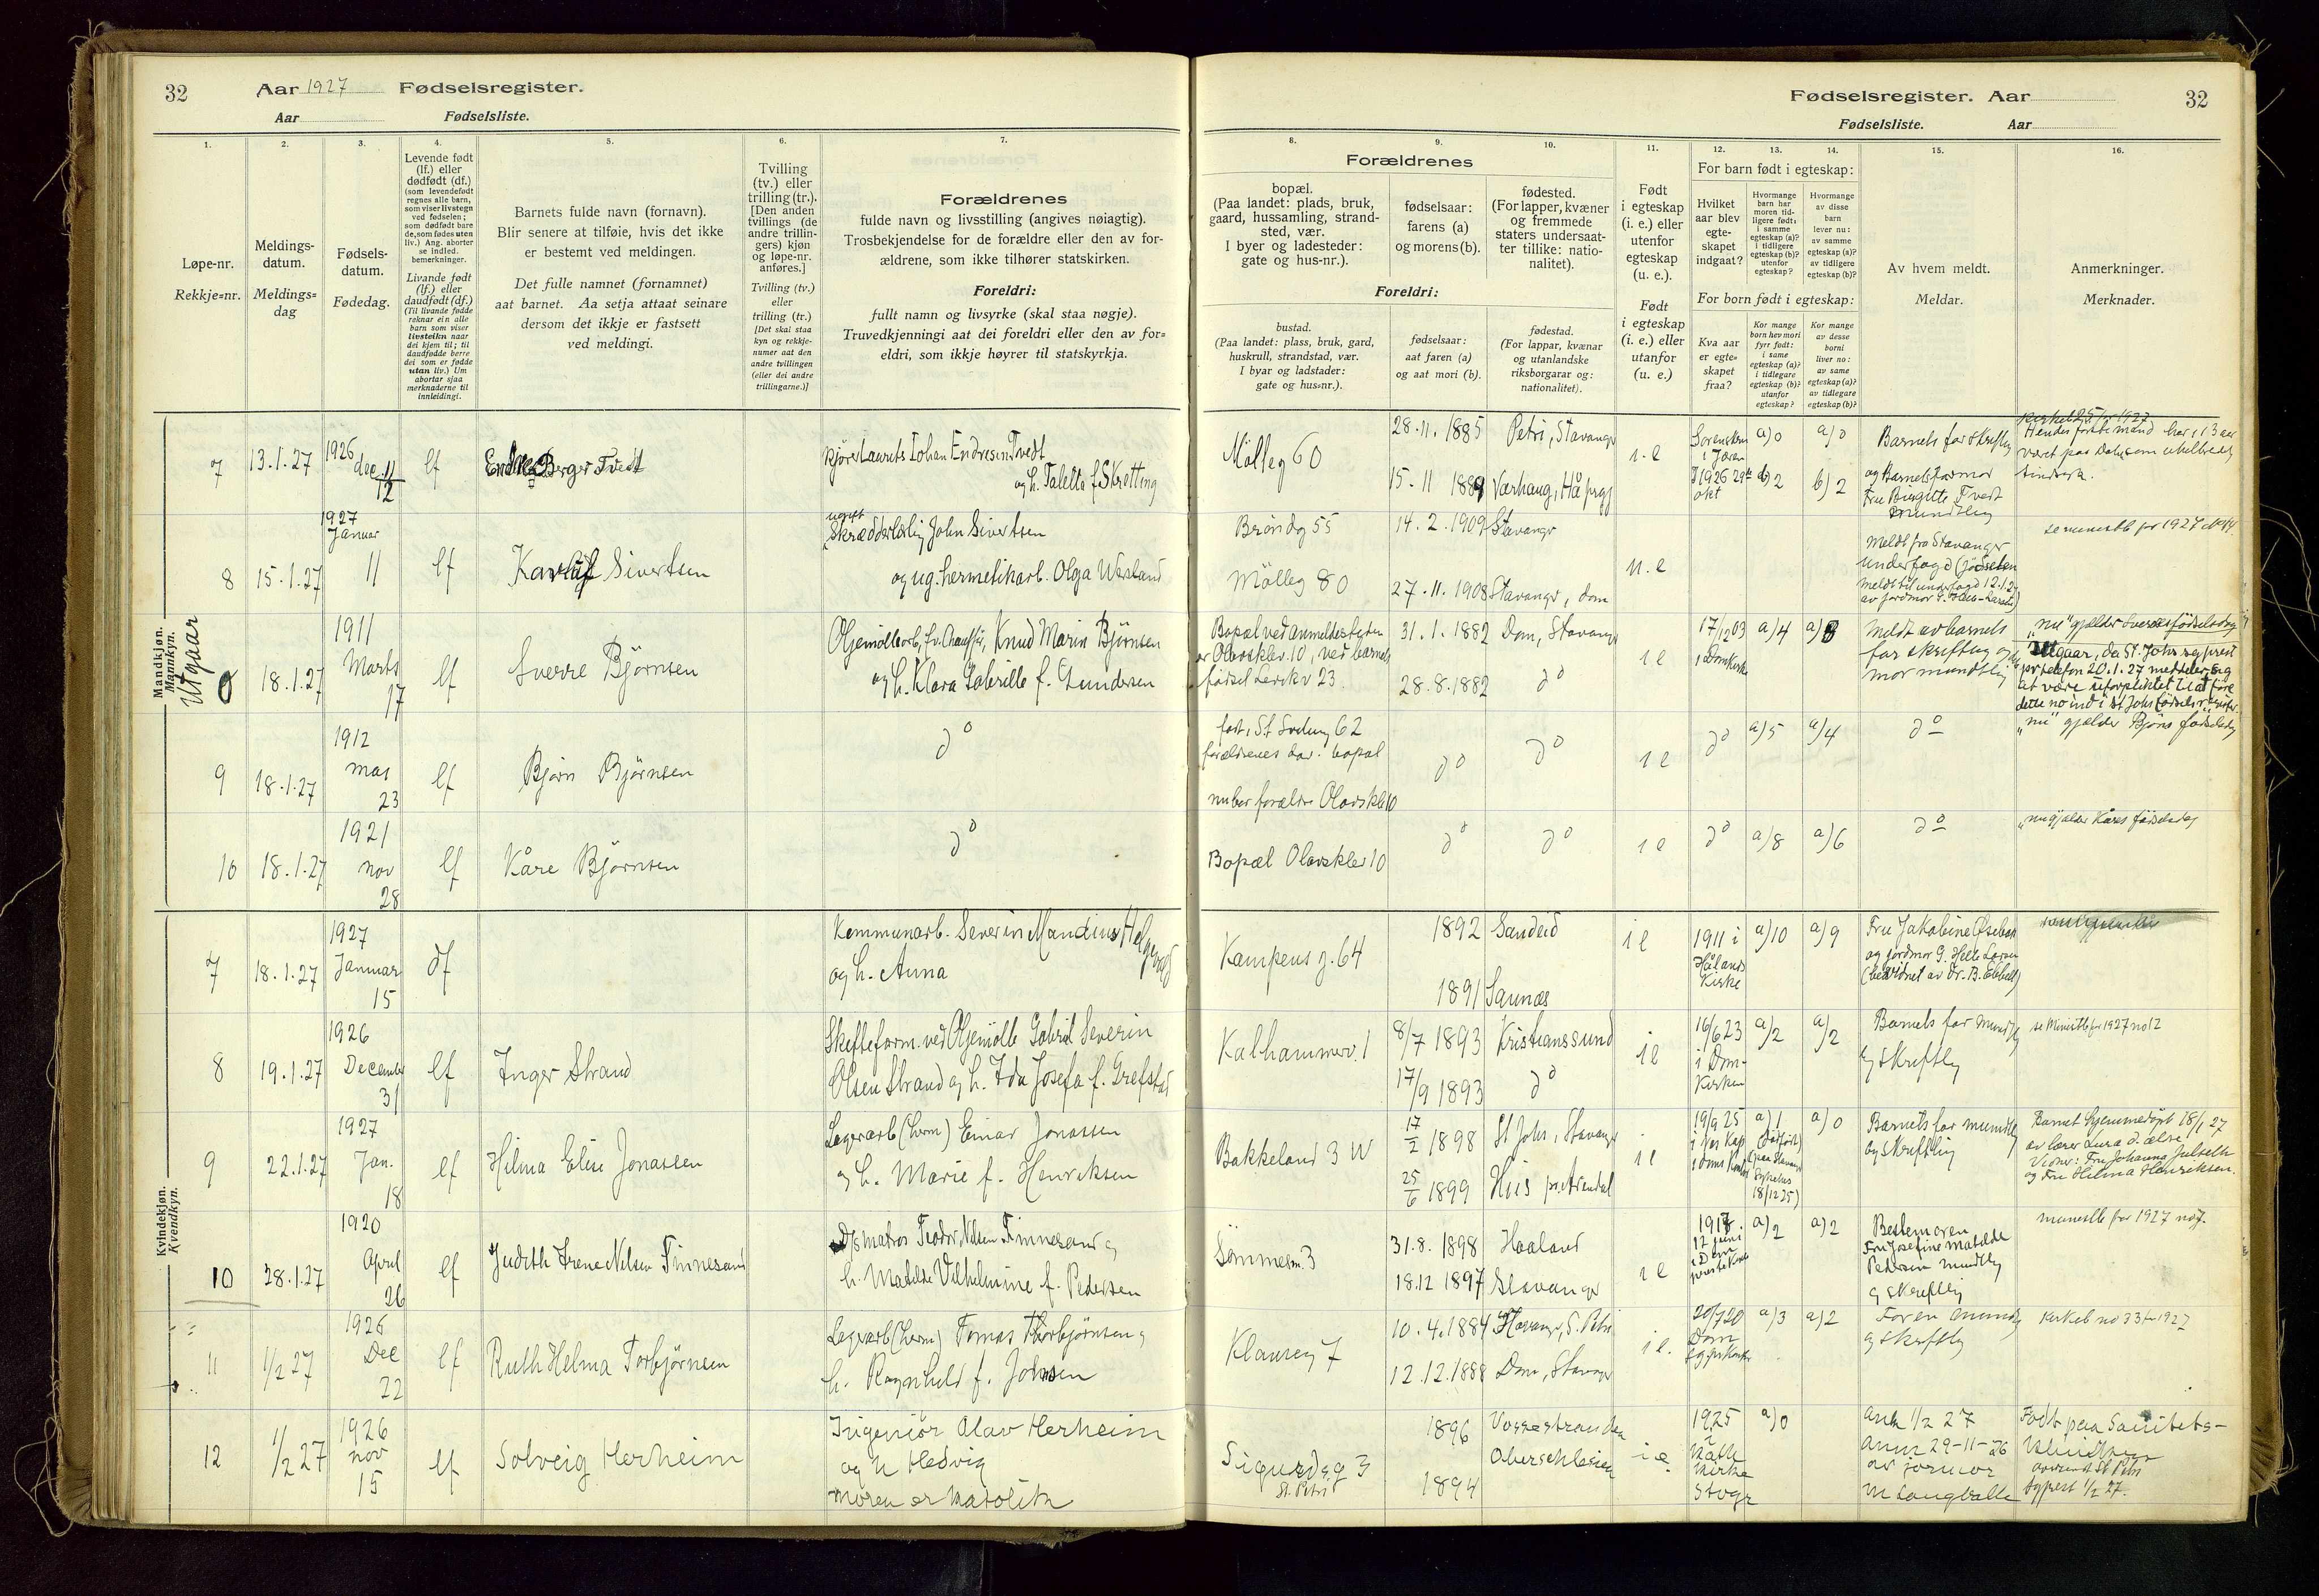 32 Aar 1927 Fødselsregister.
Aar Fødselsliste.
Fødselsregister. Aar 32
Fødselsliste. Aar
1. 2. 3. 4. 5. 6. 7. 8. 9. 10. 11. 12. 13. 14. 15. 16.
Løpe-nr.
Rekkje=nr.
Meldings-
datum.
Meldings=
dag
Fødsels-
datum.
Fødedag.
Levende født
(lf.) eller
dødfødt (df.)
(som levendefødt
regnes alle barn,
som viser livstegn
ved fødselen;
som dødfødt bare
de, som fødes uten
liv.) Ang. aborter
se indled.
bemerkninger.
Livande født
(lf.) eller
daudfødt (df.)
(Til livande fødde
reknar ein alle
barn som viser
livsteikn naar
dei kjem til; til
daudfødde berre
dei som er fødde
utan liv.) Um
abortar sjaa
merknaderne til
innleidingi.
Barnets fulde navn (fornavn).
Blir senere at tilføie, hvis det ikke
er bestemt ved meldingen.
Det fulle namnet (fornamnet)
aat barnet. Aa setja attaat seinare
dersom det ikkje er fastsett
ved meldingi.
Tvilling
(tv.) eller
trilling (tr.).
[Den anden
tvillings (de
andre trillin-
gers) kjøn
og løpe-nr.
anføres.]
Tvilling (tv.)
eller
trilling (tr.)
[Det skal staa
kyn og rekkje-
numer aat den
andre tvillingen
(eller dei andre
trillingarne.)]
Forældrenes
fulde navn og livsstilling (angives nøiagtig).
Trosbekjendelse for de forældre eller den av for-
ældrene, som ikke tilhører statskirken.
Foreldri:
fullt namn og livsyrke (skal staa nøgje).
Truvedkjenningi aat dei foreldri eller den av for=
eldri, som ikkje høyrer til statskyrkja.
Forældrenes
bopæl.
(Paa landet: plads, bruk,
gaard, hussamling, strand-
sted, vær.
I byer og ladesteder:
gate og hus-nr.).
Foreldri:
bustad.
(Paa landet: plass, bruk, gard,
huskrull, strandstad, vær.
I byar og ladstader:
gate og hus=nr.).
fødselsaar:
farens (a)
og morens (b).
fødselsaar:
aat faren (a)
og aat mori (b).
fødested.
(For lapper, kvæner
og fremmede
staters undersaat-
ter tillike: natio-
nalitet).
fødestad.
(For lappar, kvænar
og utanlandske
riksborgarar og:
nationalitet).
Født
i egteskap
(i. e.) eller
utenfor
egteskap
(u. e.).
Født
i egteskap
(i. e.) eller
utanfor
(u. e.)
For barn født i egteskap:
Hvilket
aar blev
egte-
skapet
indgaat?
For born født i egteskap:
Kva aar
er egte=
skapet
fraa?
Hvormange
barn har
moren tid-
ligere født:
i samme
egteskap (a)?
i tidligere
egteskap (b)?
utenfor
egteskap?
Kor mange
born hev mori
fyrr født:
i same
egteskap (a)?
i tidlegare
egteskap (b)?
utanfor
egteskap?
Hvormange
av disse
barn
lever nu:
av samme
egteskap (a)?
av tidligere
egteskap (b)?
Kor mange
av desse
borni
liver no:
av same
egteskap (a)?
av tidlegare
egteskap (b)?
Av hvem meldt.
Meldar.
Anmerkninger.
Merknader.
Mandkjøn.
Mannkyn.
7 13.1.27 1926 dec 11/12 lf Endre Berger Tvedt
Laurits Johan Endresen Tvedt
og h. Talette f. Skretting
Mølleg 60
28.11.1885 Petri, Stavanger
15.11 1889 Varhaug, Hå prgj
i.e
a) 0 a) 0
b) 2 b) 2
Barnets far skriftlig
og Barnets farmor
Fru Birgitte Tvedt
mundtlig
8 15.1.27 1927 Januar 11 lf Sivertsen
ugift
Skrædderlærling John Sivertsen
og ug. hermetikarb. Olga Vestland
Brøndg 55
14.2.1909 Stavanger
Mølleg 80
27.11.1908 Stavanger, dom
u.e
Meldt fra Stavanger
Utgaar
18.1.27 1911 Marts 17 lf Sverre Bjørnsen
Oljemøllearb., Knud Marin Bjørnsen
og h. Klara Gabrielle f. Gundersen
Bopæl ved anmeldelsestiden
er Olavsklev. 10, ved barnets
fødsel Lerkev 23.
31.1.1882 Dom, Stavanger
28.8.1882 do
i e
17/12 03
i Domkirke
a) 4
Meldt av barnets
far skriftlig og
mor mundtlig
"nu" gjælder Sverres fødselsdag
Utgaar, da St. Johs sognprest
per telefon 20.1.27 meddeler sig
at være uforpliktet til at føre
dette no ind i St Johs fødselsregister.
9 18.1.27 1912 mai 23 lf Bjørn Bjørnsen
do
født i St Svithung 62
forældrenes dav. bopæl
nu bor forældre Olavsklev 10
do do i e do a) 5 a) 4 do
"nu" gjælder Bjørns fødselsdag
10 18.1.27 1921 nov 28 lf Kåre Bjørnsen
do
Bopæl Olavsklev 10
do do i e do a) 8 a) 6 do
"nu" gjælder Kåres fødselsdag
Kvindekjøn.
Kvendkyn.
7 18.1.27 1927 Januar 15 df
Kommunarb. Severin Mandius
og h. Anna
Kampens g. 64
1892 Sandeid
1891
i e
1911 i
Hålands
Kirke
a) 10 a) 9
Fru Jakobine
og jordmor G. Helle Larsen
(bevidnet av dr. B. Ebbell)
8 19.1.27 1926 December 31 lf Inger Strand
Skofteform. ved Oljemølle Gabriel Severin
Olsen Strand og h. Ida Josefa f. Grefstad
Kalhammerv. 1
8/7 1893 Kristianssund
17/9 1893 do
i e
16/6 23
i Dom-
kirken
a) 2 a) 2
Barnets far mundtlig
og skriftlig
se Ministb for 1927 no 12
9 22.1.27 1927 Jan. 18 lf Hilma Elise Jonassen
Lagerarb (herm) Einar Jonassen
og h. Marie f. Henriksen
Bakkeland 3 W
17/2 1898 St Johs, Stavanger
25/6 1899 His pr. Arendal
i e
19/9 25
a) 1
(dødfødt)
18/12 25)
a) 0
Barnets far mundtlig
og skriftlig
Barnet hjemmedøpt 18/1 27
av lærer Lura d. ældre
Vidner: Fru Johanna Julseth
og Fru Hilma Henriksen.
10 28.1.27 1920 April 26 lf Judith Irene Nilsen Finnesand
matros Teodor Nilsen Finnesand og
h. Matilde Vilhelmine f. Pedersen
Sømmem. 3
31.8. 1898 Haaland
18.12 1897 Stavanger
i e
12 juni
a) 2 a) 2
Bestemoren
Fru Josefine Matilde
Pedersen mundtlig
og skriftlig
ministb for 1927 no 7.
11 1/2 27 1926 Dec 22 lf Ruth Helma Torbjørnsen
Lagerarb (herm) Tomas Thorbjørnsen og
h. Ragnhild f. Johnsen
Klauseg 7
10.4.1884 Stavanger, S. Petri
12.12.1888 Dom, Stavanger
i e.
20/7 20
Dom
a) 3 a) 2
Faren mundtlig
og skriftlig
Kirkeb no 33 for 1927
12 1/2 27 1926 nov 15 lf Solveig Herheim
Ingeniør Olav Herheim
og h Hedvig
Moren er Katolik
Sigurdsg 3
St. Petri
1896 Vossestranden
1894 Oberschlesien
i e
1925
i
Kath
Kirke
Stvgr
a) 0
Ank 1/2 27
Anm 29-11-26
av jormor
M Langballe
Født paa Sanitets-
St Petri
1/2 27.